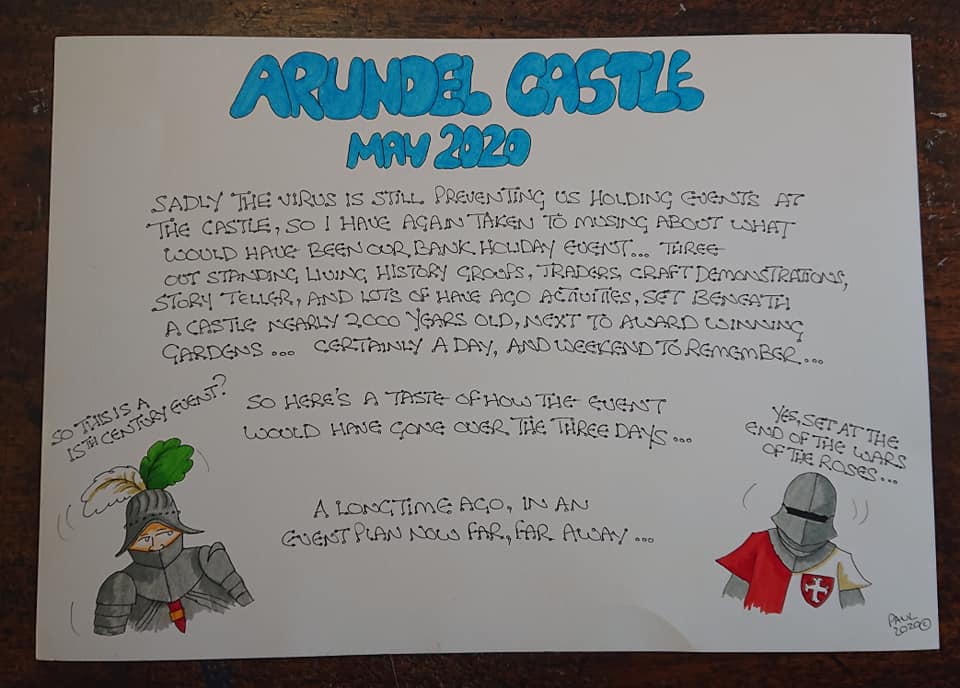 ARUNDEL CASTLE
MAY 2020
SADLY THE VIRUS IS STILL PREVENTING US HOLDING EVENTS AT
THE CASTLE, SO I HAVE AGAIN TAKEN TO MUSING ABOUT WHAT
WOULD HAVE BEEN OUR BANK HOLIDAY EVENT... THREE
OUT STANDING LIVING HISTORY GROUPS, TRADERS, CRAFT DEMONSTRATIONS,
STORY TELLER, AND LOTS OF HAVE AGO ACTIVITIES, SET BENEATH
A CASTLE NEARLY 2000 YEARS OLD, NEXT TO AWARD WINNING
GARDENS... CERTAINLY A DAY, AND WEEKEND TO REMEMBER...
SO HERE'S A TASTE OF HOW THE EVENT
WOULD HAVE GONE OVER THE THREE DAYS...
SO THIS IS A
15TH CENTURY EVENT?
YES, SET AT THE
END OF THE WARS
OF THE ROSES...
A LONGTIME AGO, IN AN
EVENT PLAN NOW FAR, FAR AWAY...
PAUL
2020©